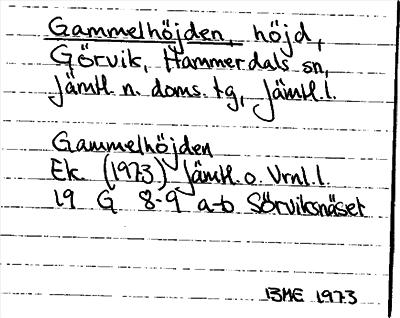 Gammelhöjden, höjd,
Görvik, Hammerdals sn,
Jämtl. n. doms. tg, Jämtl. l.
Gammelhöjden
Ek. (1973) Jämtl. o. Vrnl. l.
19 G 8-9 a-b Sörviksnäset
BME 1973